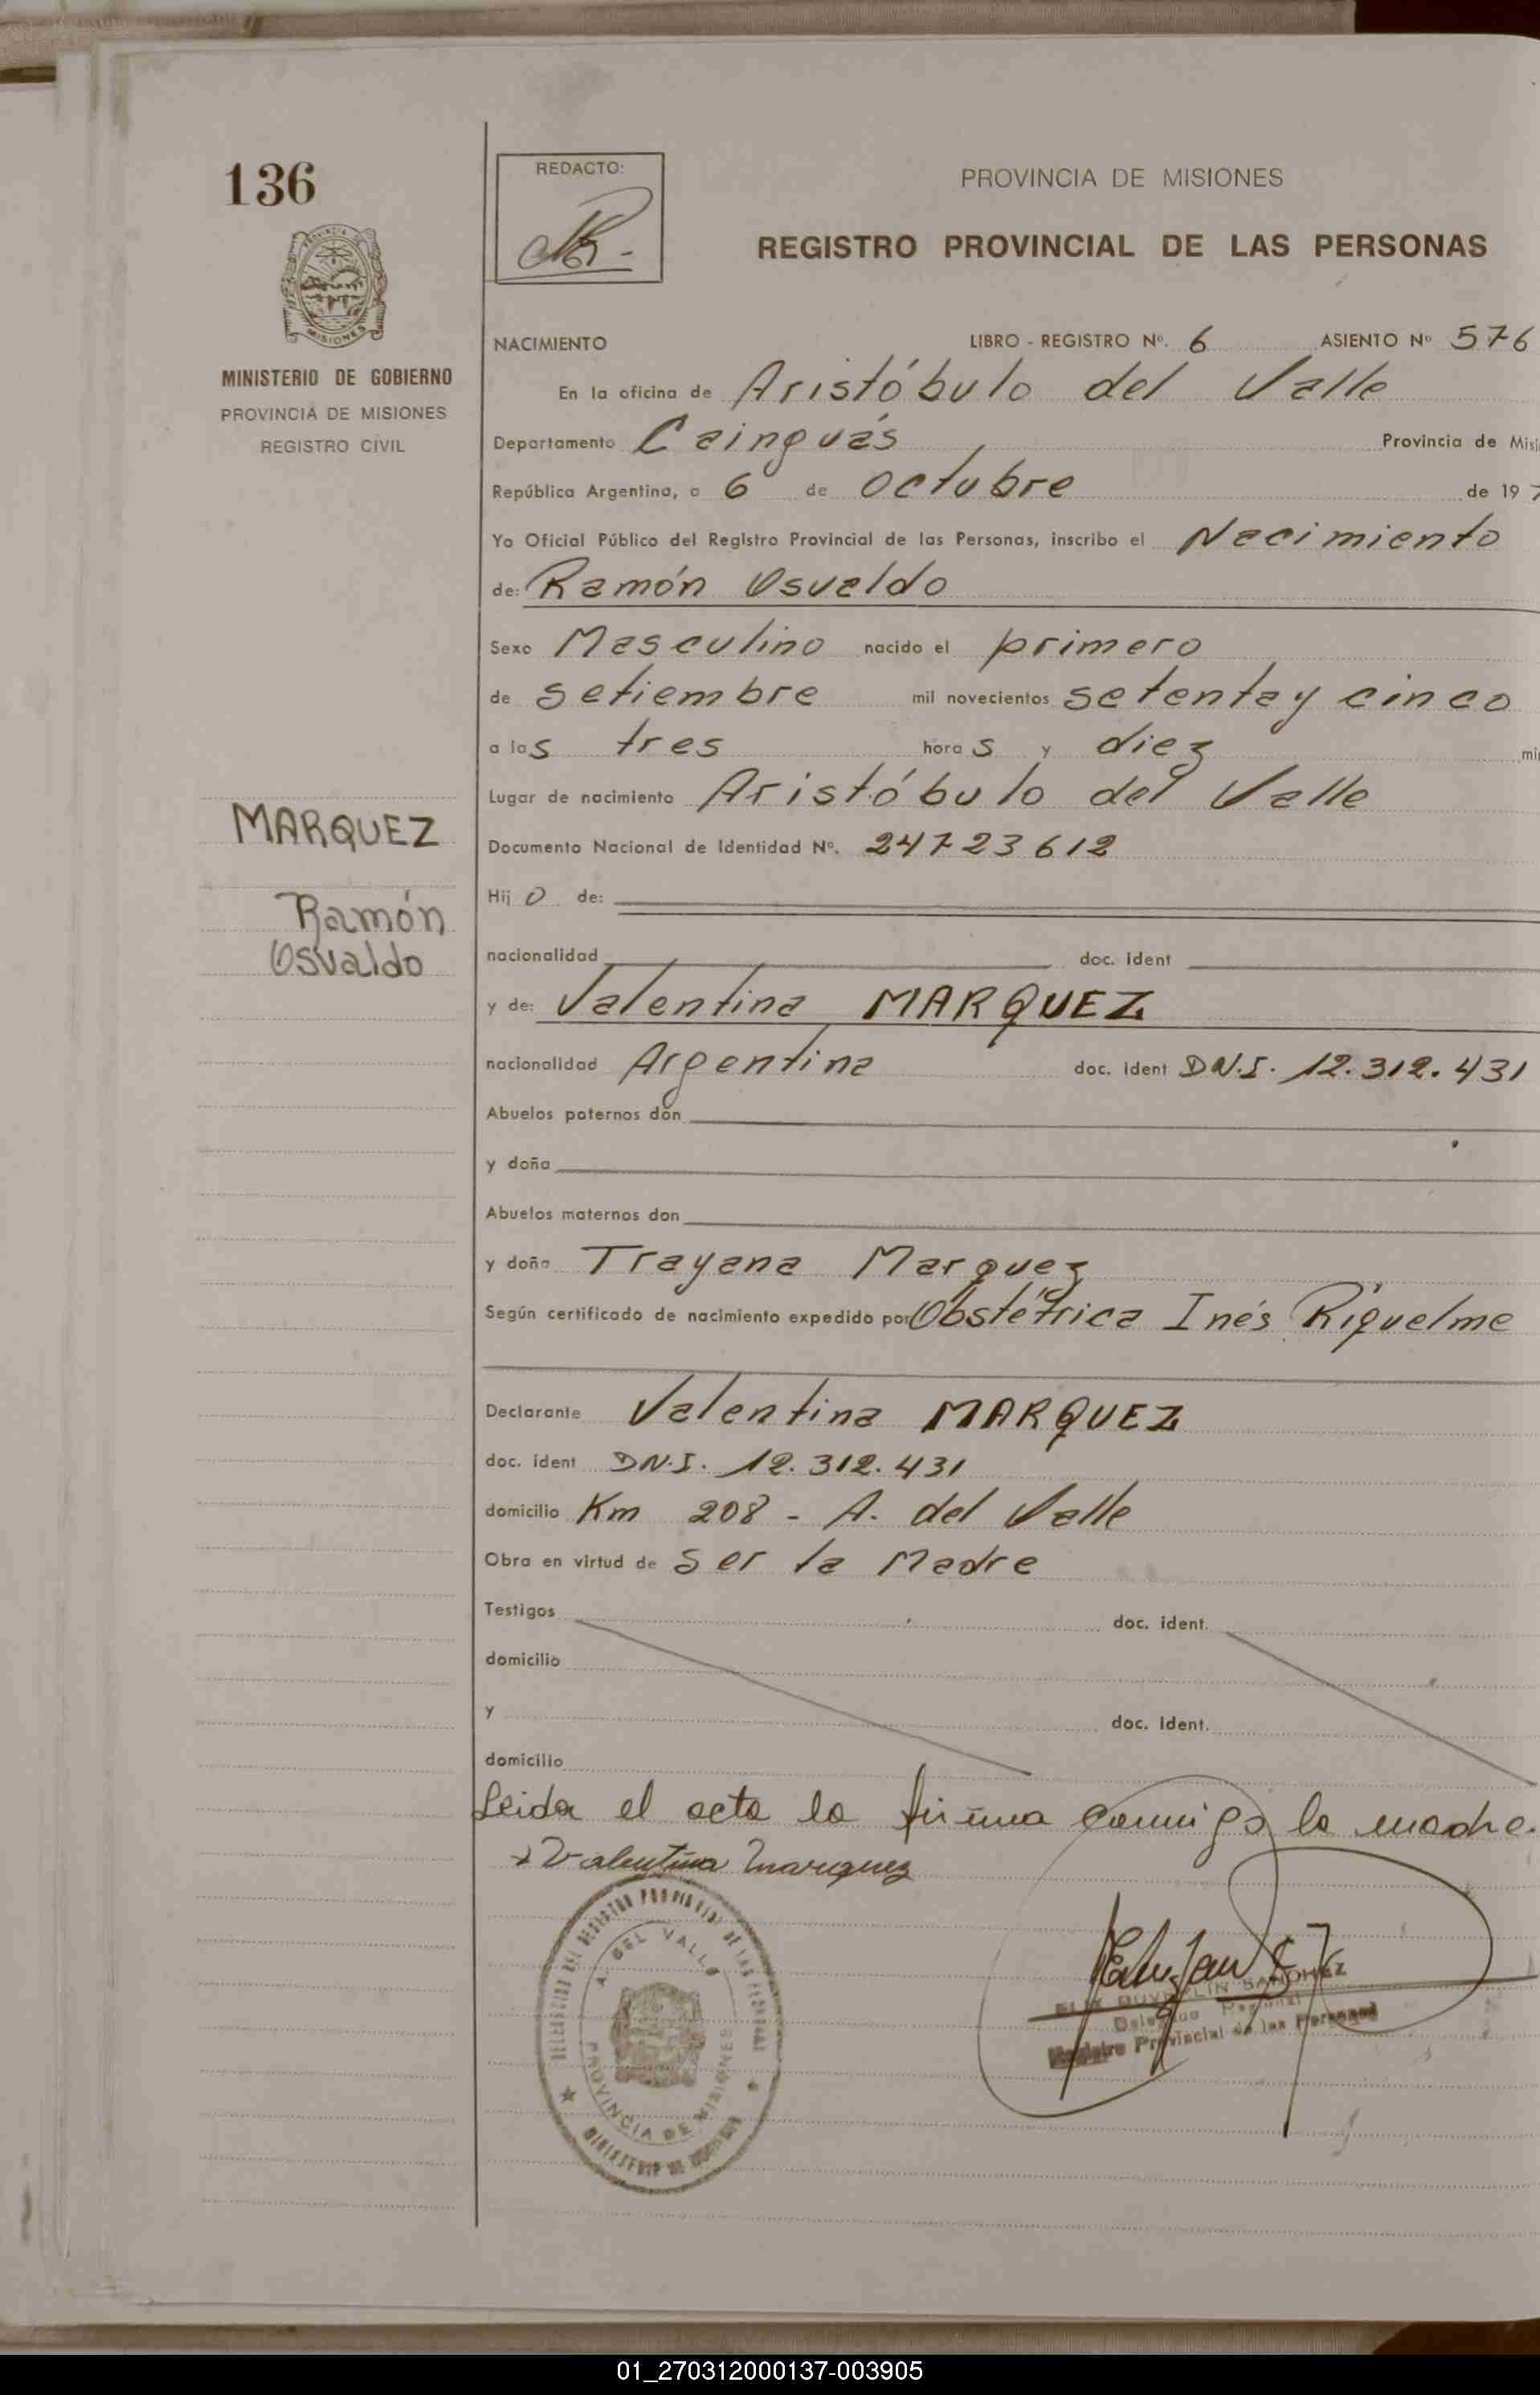 136
REDACTO:
PROVINCIA DE MISIONES
REGISTRO PROVINCIAL DE LAS PERSONAS
MISIONES
MINISTERIO DE GOBIERNO
PROVINCIA DE MISIONES
REGISTRO CIVIL
NACIMIENTO LIBRO - REGISTRO Nº. 6 ASIENTO Nº 576
En la oficina de Aristóbulo del Valle
Departamento Cainguás Provincia de Misi
República Argentina, a 6 de octubre de 197
Yo Oficial Público del Registro Provincial de las Personas, inscribo el Nacimiento
de: Ramón Osvaldo
Sexo Masculino nacido el primero
de setiembre mil novecientos setenta y cinco
a las tres horas y diez mi
Lugar de nacimiento Aristóbulo del Valle
MARQUEZ
Documento Nacional de Identidad Nº. 24723612
Ramón
Osvaldo
Hijo de:
nacionalidad doc. ident
y de: Valentina MARQUEZ
nacionalidad Argentina doc. ident D.N.I. 12.312.431
Abuelos paternos don
y doña
Abuelos maternos don
y doña Trayana Marquez
Según certificado de nacimiento expedido por Obstétrica Inés Riquelme
Declarante Valentina MARQUEZ
doc. ident D.N.I. 12.312.431
domicilio Km 208 - A. del Valle
Obra en virtud de ser la Madre
Testigos doc. ident.
domicilio
y doc. ident.
domicilio
Leida el acta la firma conmigo la madre.
x Valentina Marquez
A. DEL VALLE
PROVINCIA DE MISIONES
SANCHEZ
Delegado Regional
Registro Provincial de las Personas
01_270312000137-003905